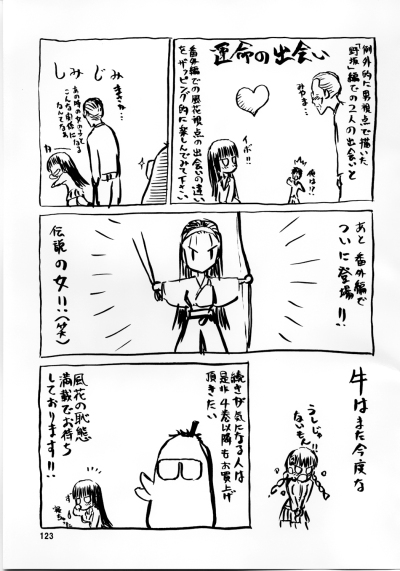 例外的に男視点で描いた
「野坂」編での2人の出会いと
運命の出会い
みやま…
俺は!?
イボ!!
番外編での風花視点の出会いの違い
をザッピング的に楽しんでみて下さい
まさか…
しみじみ
あの時の女のコと
こんな関係になる
なんてなあ
あと番外編で
ついに登場!!
伝説の女!!(笑)
牛はまた今度な
うしじゃ
ないもん!
続きが気になる人は
是非4巻以降もお買上げ
頂きたい
風花の恥態
満載でお待ち
しております!!
123